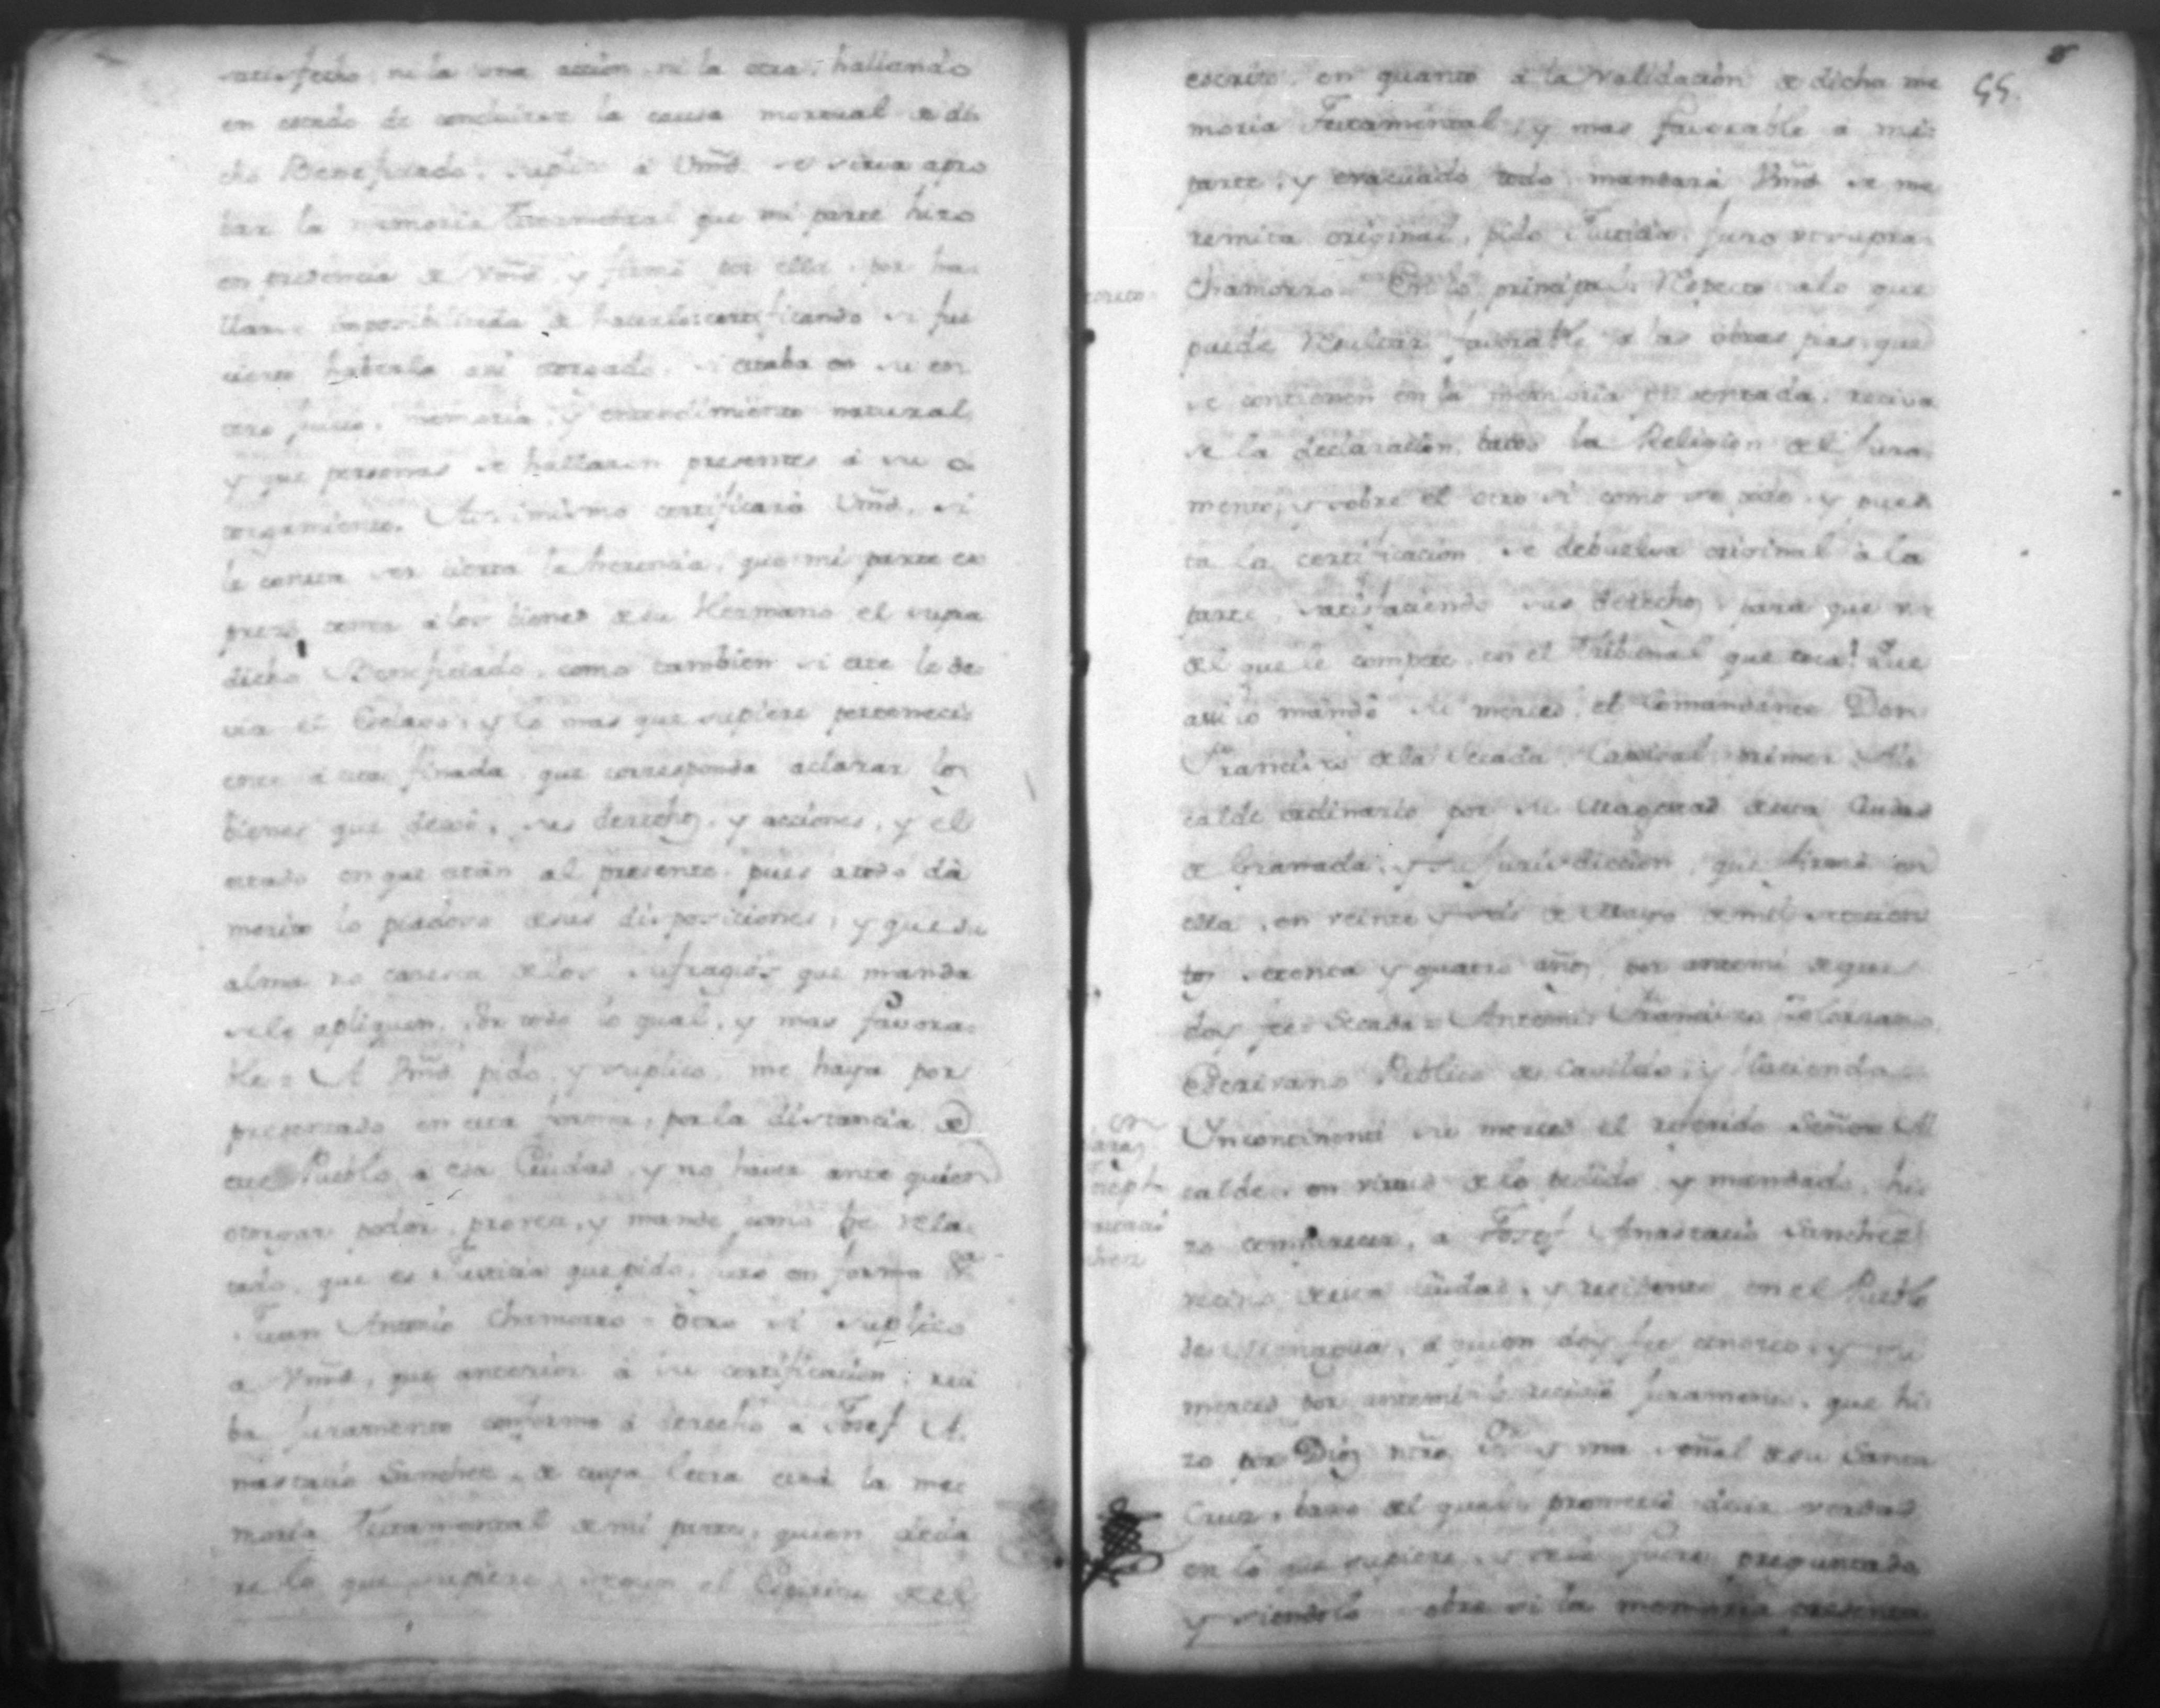 satisfecho ni la una accion ni la otra, hallando
en estado de concluirse la causa mortual de di
cho Beneficiado, suplico a Vmd. se sirva apro
bar la memoria Testamental que mi parte hizo
en presencia de Vmd. y firmó por ella, por ha
llarse imposibilitada de hacerlo: certificando si fue
cierto haberla assi otorgado, si estaba en su en
tero juicio, memoria, y entendimiento natural,
y que personas se hallaron presentes á su o
torgamiento. Assimismo certificará Vmd. si
le consta ser cierta la herencia, que mi parte ex
presó tener á los bienes de su Hermano el supra
dicho Beneficiado, como tambien si este le de
via el Esclavo, y lo mas que supiere pertenecien
te á esta finada, que corresponda aclarar los
bienes que dexó, sus derechos, y acciones, y el
estado en que están al presente, pues a todo dá
merito lo piadoso de sus disposiciones, y que su
alma no caresca de los sufragios que manda
se le apliquen. Por todo lo qual, y mas favora=
ble = A Vmd. pido, y suplico, me haya por
presentado en esta forma, por la distancia de
este Pueblo a esa Ciudad, y no haver ante quien
otorgar poder, provea, y mande como he rela
tado, que es Justicia que pido, juro en forma &a.
Juan Antonio Chamorro = Otro si suplico
a Vmd, que anterior á su certificacion, reci
ba juramento conforme á derecho a Josef A
nastacio Sanchez, de cuya letra está la me
moria Testamental de mi parte, quien decla
re lo que supiere, segun el Espiritu del
8
55.
escrito, en quanto á la validacion de dicha me
moria Testamental, y mas favorable a mi
parte, y evacuado todo mandará Vmd. se me
remita original, pido Justicia, juro ut supra
Chamorro = En lo principal: Respecto a lo que
puede resultar favorable a las obras pias, que
se contienen en la memoria presentada, reciva
se la declaracion, baxo la Religion del jura
mento, y sobre el otro si como se pide, y pues
ta la certificacion se debuelva original á la
parte, satisfaciendo sus derechos, para que use
del que le compete, en el Tribunal que toca: Que
assi lo mandó su merced, el Comandante Don
Francisco de la Secada, primer Al
calde ordinario por su Magestad de esta Ciudad
de Granada, y su Jurisdiccion, que firmó en
ella, en veinte y seis de Mayo de mil setecien
tos setenta y quatro años, por antemi de que
doy fee = Secada = Antemi: Francisco Solorzano
Escrivano Publico de Cavildo, y Hacienda
Incontinenti su merced el referido Señor Al
calde, en virtud de lo pedido y mandado, hi
zo comparecer, a Josef Anastacio Sanchez
vecino de esta Ciudad, y residente en el Pueblo
de Managua, a quien doy fee conosco, y su
merced por antemi le recivió juramento, que hi
zo por Dios ntro. Sr. y una señal de su Santa
Cruz, baxo del qual, prometió decir verdad
en lo que supiere, y se le fuere preguntado
y siendolo sobre si la memoria presenta